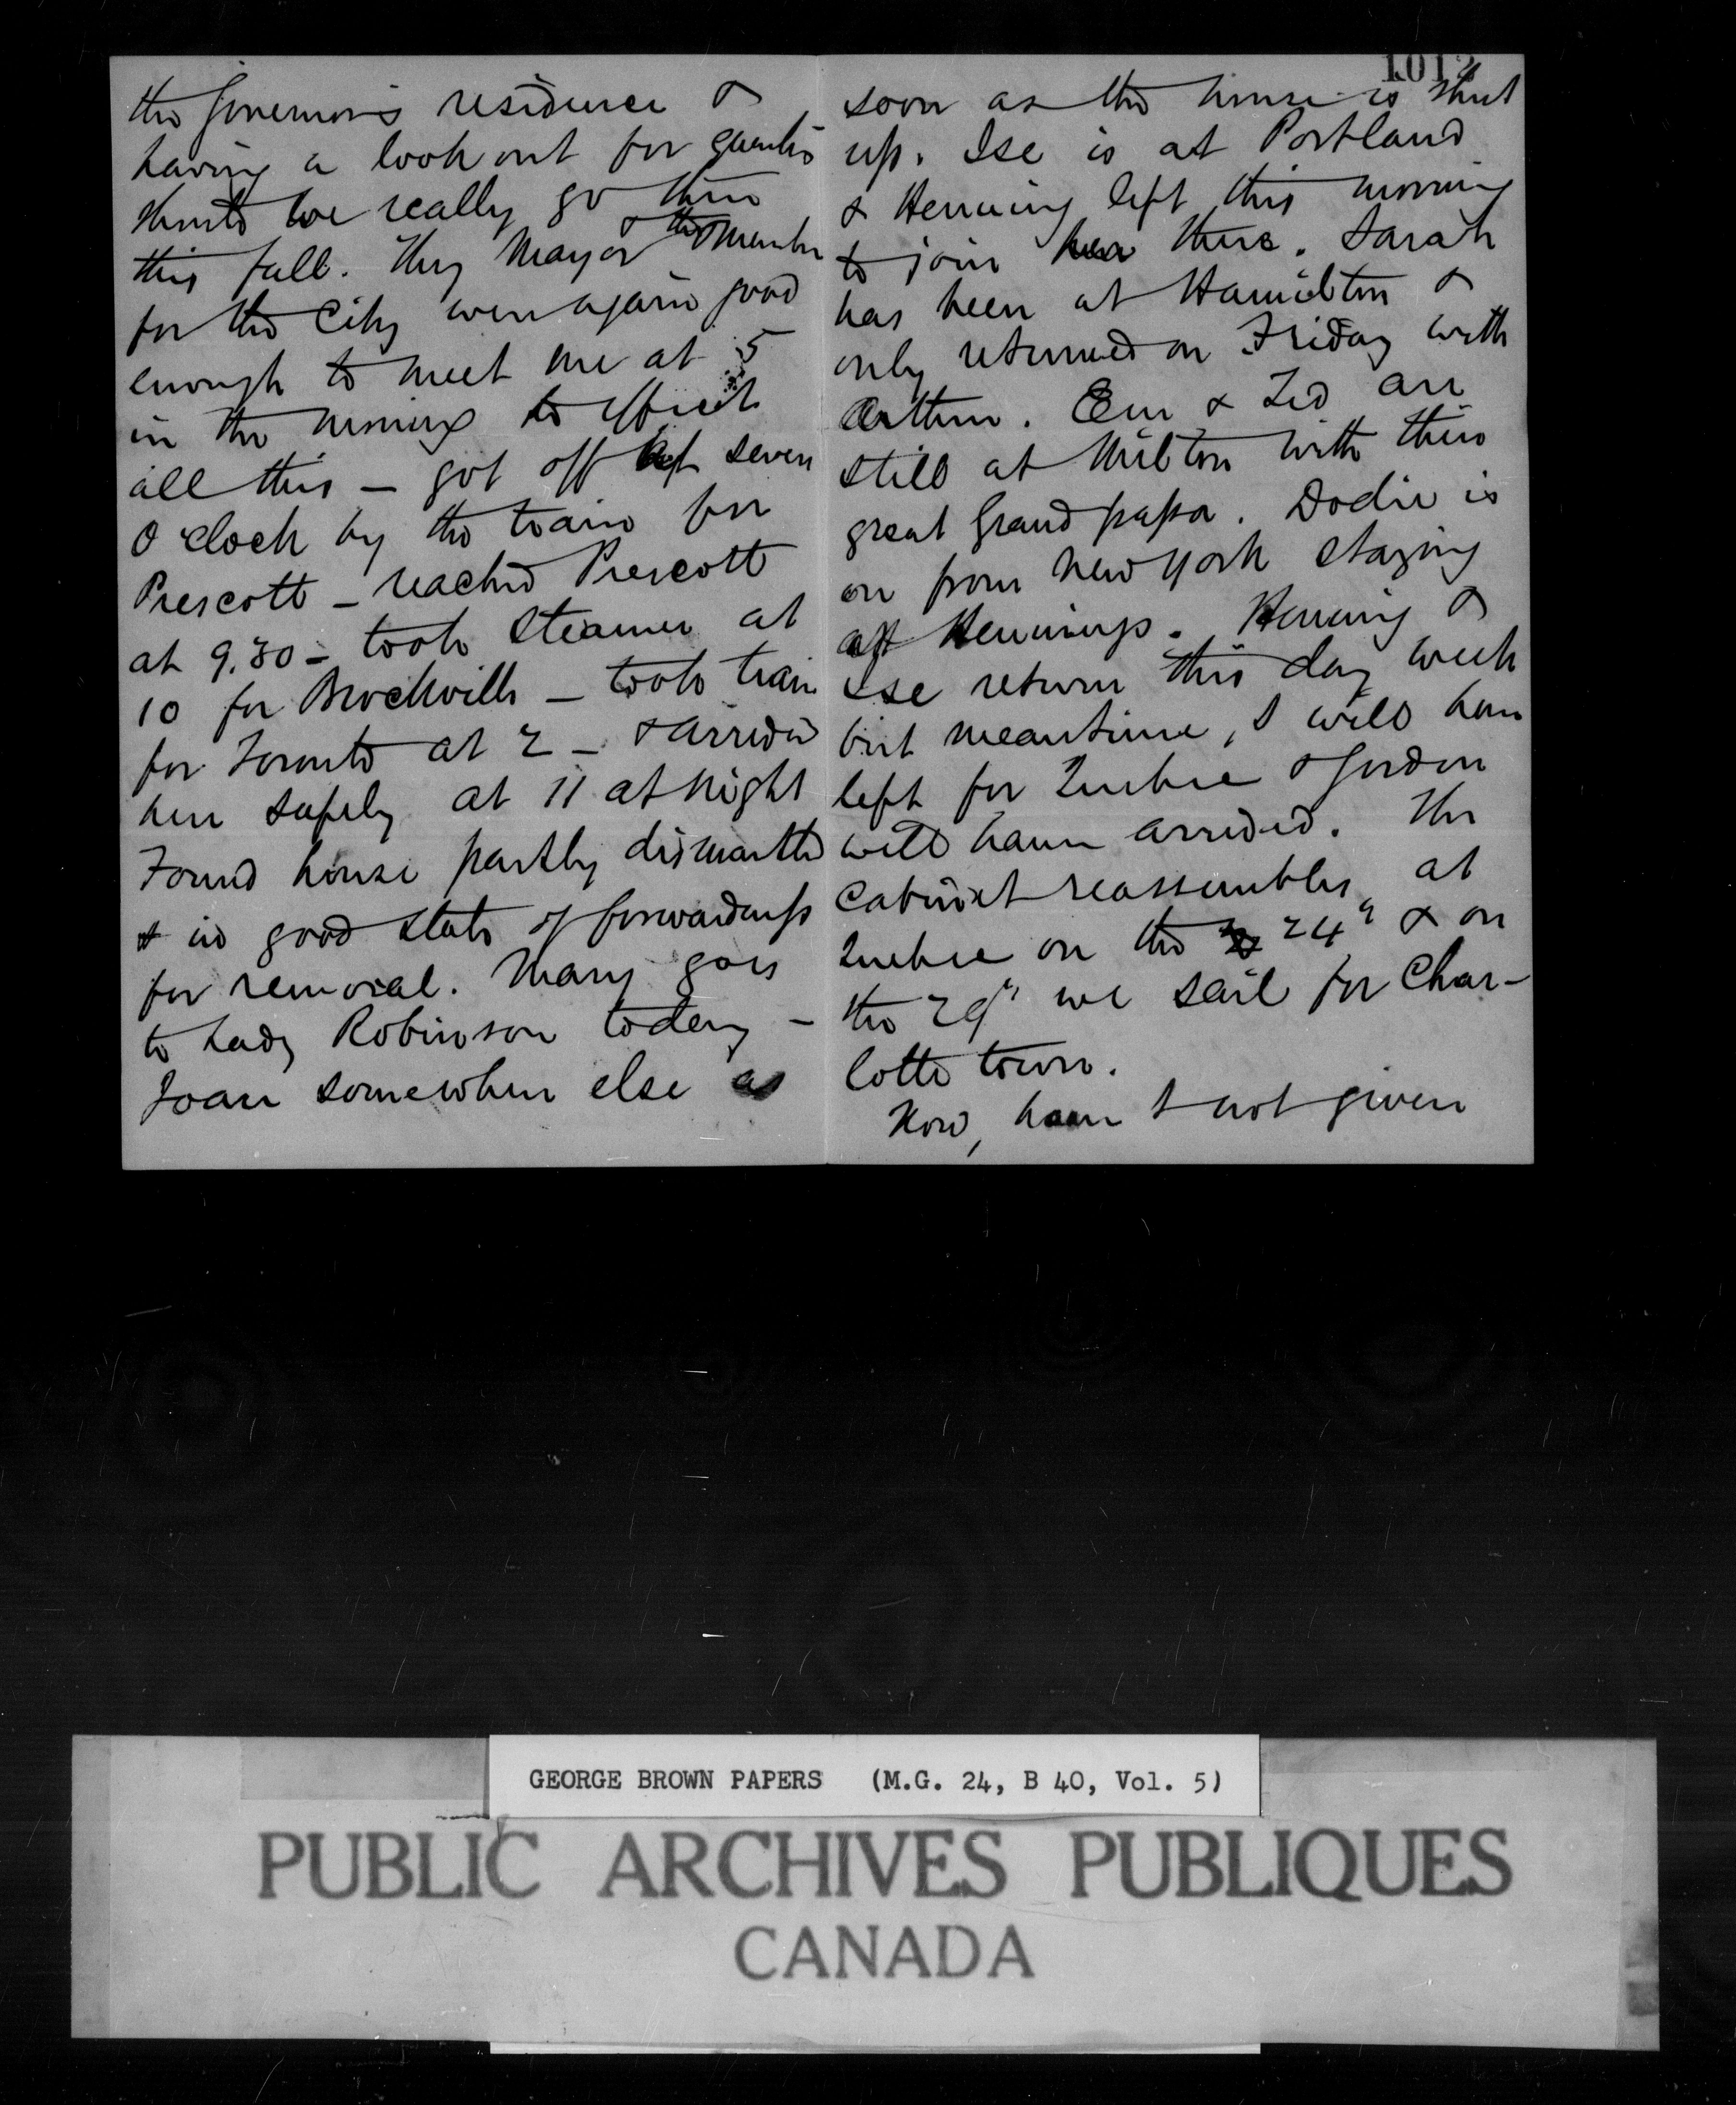 1012
the Governor's residence &
having a look out for quarters
should we really go there
this fall. The Mayor & the member
for the City were again good
enough to meet me at 5
in the morning to effect
all this — got off at seven
O'clock by the train for
Prescott — reached Prescott
at 9.30 — took Steamer at
10 for Brockville — took train
for Toronto at 2 — & arrived
here safely at 11 at night
Found house partly dismantled
& in good state of forwardness
for removal. Mary goes
to Lady Robinson today —
Joan somewhere else as
soon as the house is shut
up. Ise is at Portland
& Henning left this morning
to join her there. Sarah
has been at Hamilton &
only returned on Friday with
Arthur. Em & Ted are
still at Milton with their
great Grand papa. Dodie is
on from New York staying
at Hennings. Henning &
Ise return this day week
but meantime, I will have
left for Quebec & Gordon
will have arrived. The
Cabinet reassembles at
Quebec on the 24" & on
the 29" we sail for Char-
lotte town.
Now, have I not given
GEORGE BROWN PAPERS (M.G. 24, B 40, Vol. 5)
PUBLIC ARCHIVES PUBLIQUES
CANADA